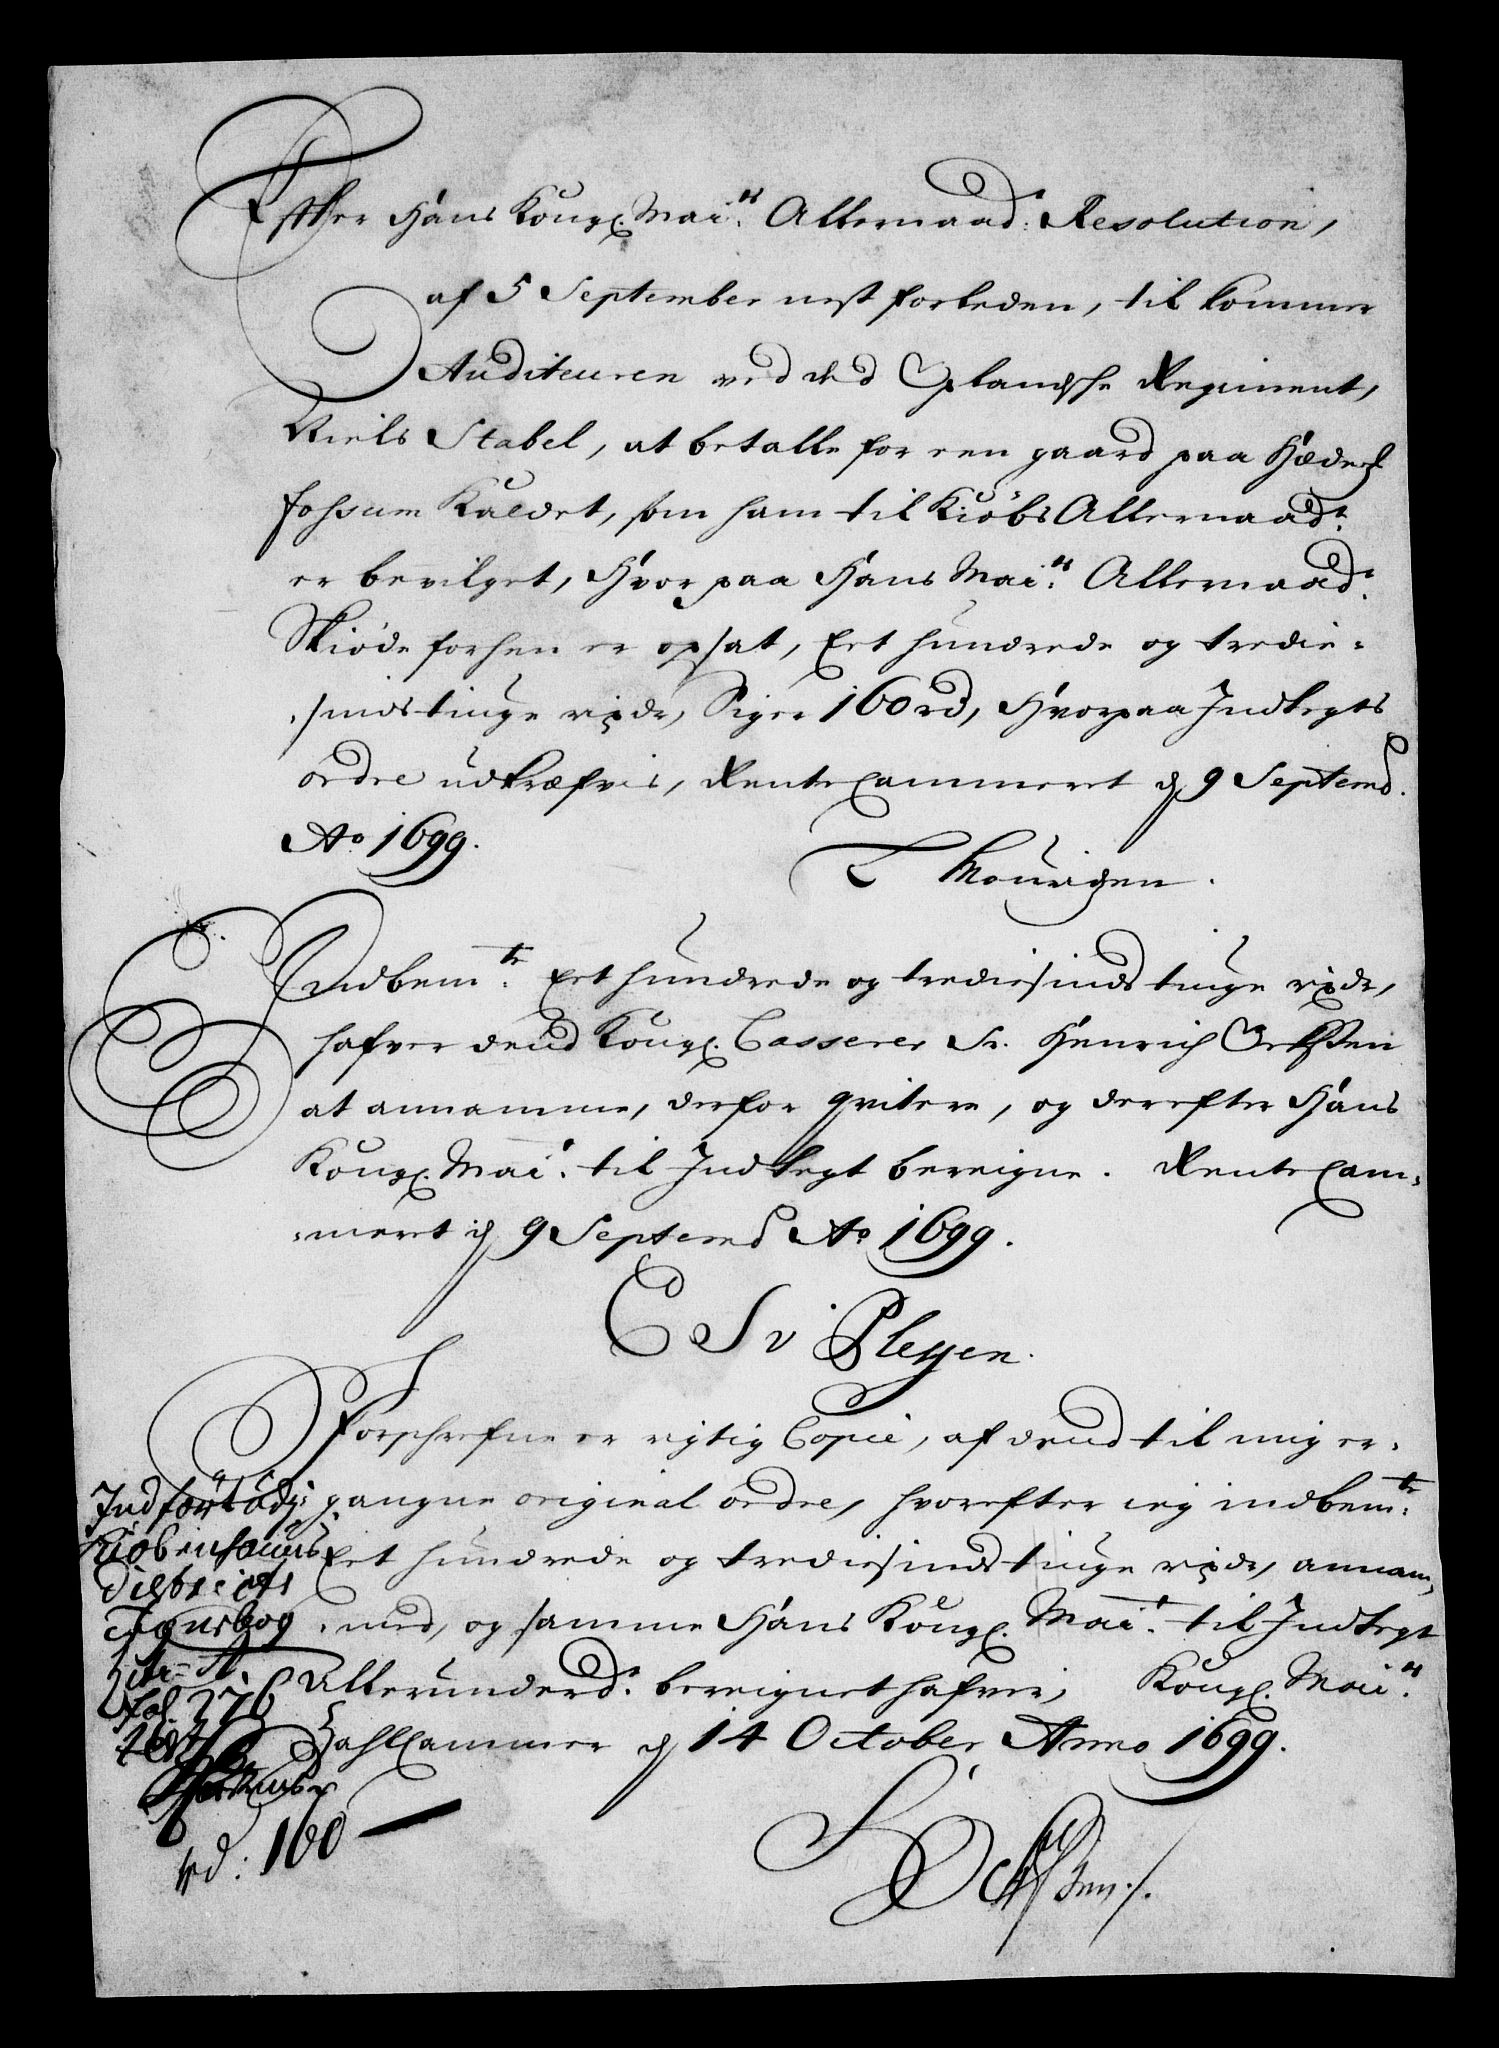 Effter Hans Kongl. Mai.ts Allernaad: Resolution,
af 5 September nest forleden, til kommer
Auditeuren ved ded Oplandsche Regiment,
Niels Stabel, at betalle for een gaard paa
Fohsum Kaldet, som ham til Kiöbs Allernaad:t
er bevilget, Hvor paa Hans Mai:ts Allernaad:t
Skiöde forhen er opsat, Eet hundrede og tredie-
sinds tiuge rixdr, Siger 160 rd, Hvorpaa Indtegts
ordre udkræfvis, Rente Cammeret d. 9 Septemb.
Ao 1699.
T
Indbem:te Eet hundrede og trediesinds tiuge rixdr,
hafver dend Kongl. Casserer Sr. Henrich
at annamme, derfor qvitere, og derefter Hans
Kongl. Mai:t til Indtegt bereigne. Rente Cam-
meret d. 9 Septemb Ao 1699.
C S v Plessen.
Forschrefne er rigtig Copie, af dend til mig er-
gangne original ordre, hvorefter ieg indbem:te
Eet hundrede og trediesinds tiuge rixdr, annam-
med, og samme Hans Kongl. Mai:t til Indtegt
Allerunderd:t bereignet hafver, Kongl. Mai:ts
Zahl Cammer d. 14 October Anno 1699.
H
Indfört udj
Kiöbenhafns
Tegnebog
Litr: A.
fol. 376
rd: 160 —